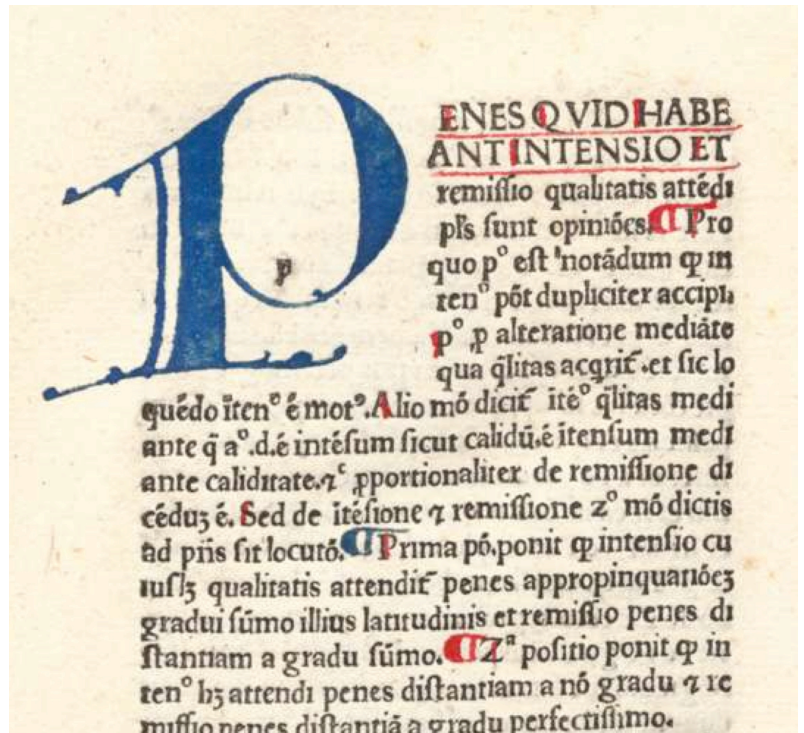 PENES QVID HABE
ANT INTENSIO ET
remissio qualitatis attēdi
pl̄s sunt opiniōes. ¶ Pro
quo pº est notādum ꝙ in
tenº pōt dupliciter accipi.
pº ꝓ alteratione mediāte
qua q̄litas acqrit᷑ .et sic lo
quēdo ītenº ē motꝰ. Alio mō dicit᷑ itēº q̄litas medi
ante q̄ aº.d.ē intēsum sicut calidū.ē itensum medi
ante caliditate.⁊ᶜ ꝓportionaliter de remissione di
cēduꝫ ē. Sed de itēsione ⁊ remissione zº mō dictis
ad pn̄s sit locutō. ¶ Prima pō.ponit ꝙ intensio cu
iusꝫ qualitatis attendit᷑ penes appropinquatiōeꝫ
gradui sūmo illius latitudinis et remissio penes di
stantiam a gradu sūmo. ¶ Zª positio ponit ꝙ in
tenº hꝫ attendi penes distantiam a nō gradu ⁊ re
missio penes distantiā a gradu perfectissimo.